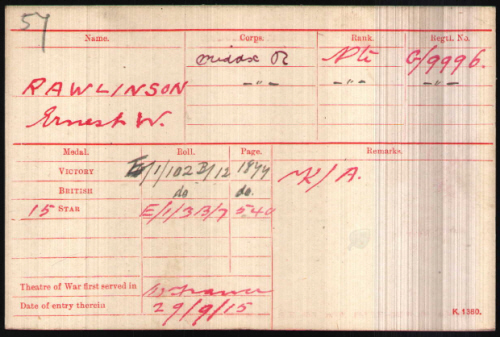 57
Name. Corps. Rank. Regtl. No.
Middx R Pte G/9996.
RAWLINSON -"- -"- -"-
Ernest W.
Medal. Roll. Page. Remarks.
VICTORY E/1/102 B/12 1844 K/A.
BRITISH do do.
15 STAR E/1/3 B/7 540
Theatre of War first served in France
Date of entry therein 29/9/15
K. 1380.